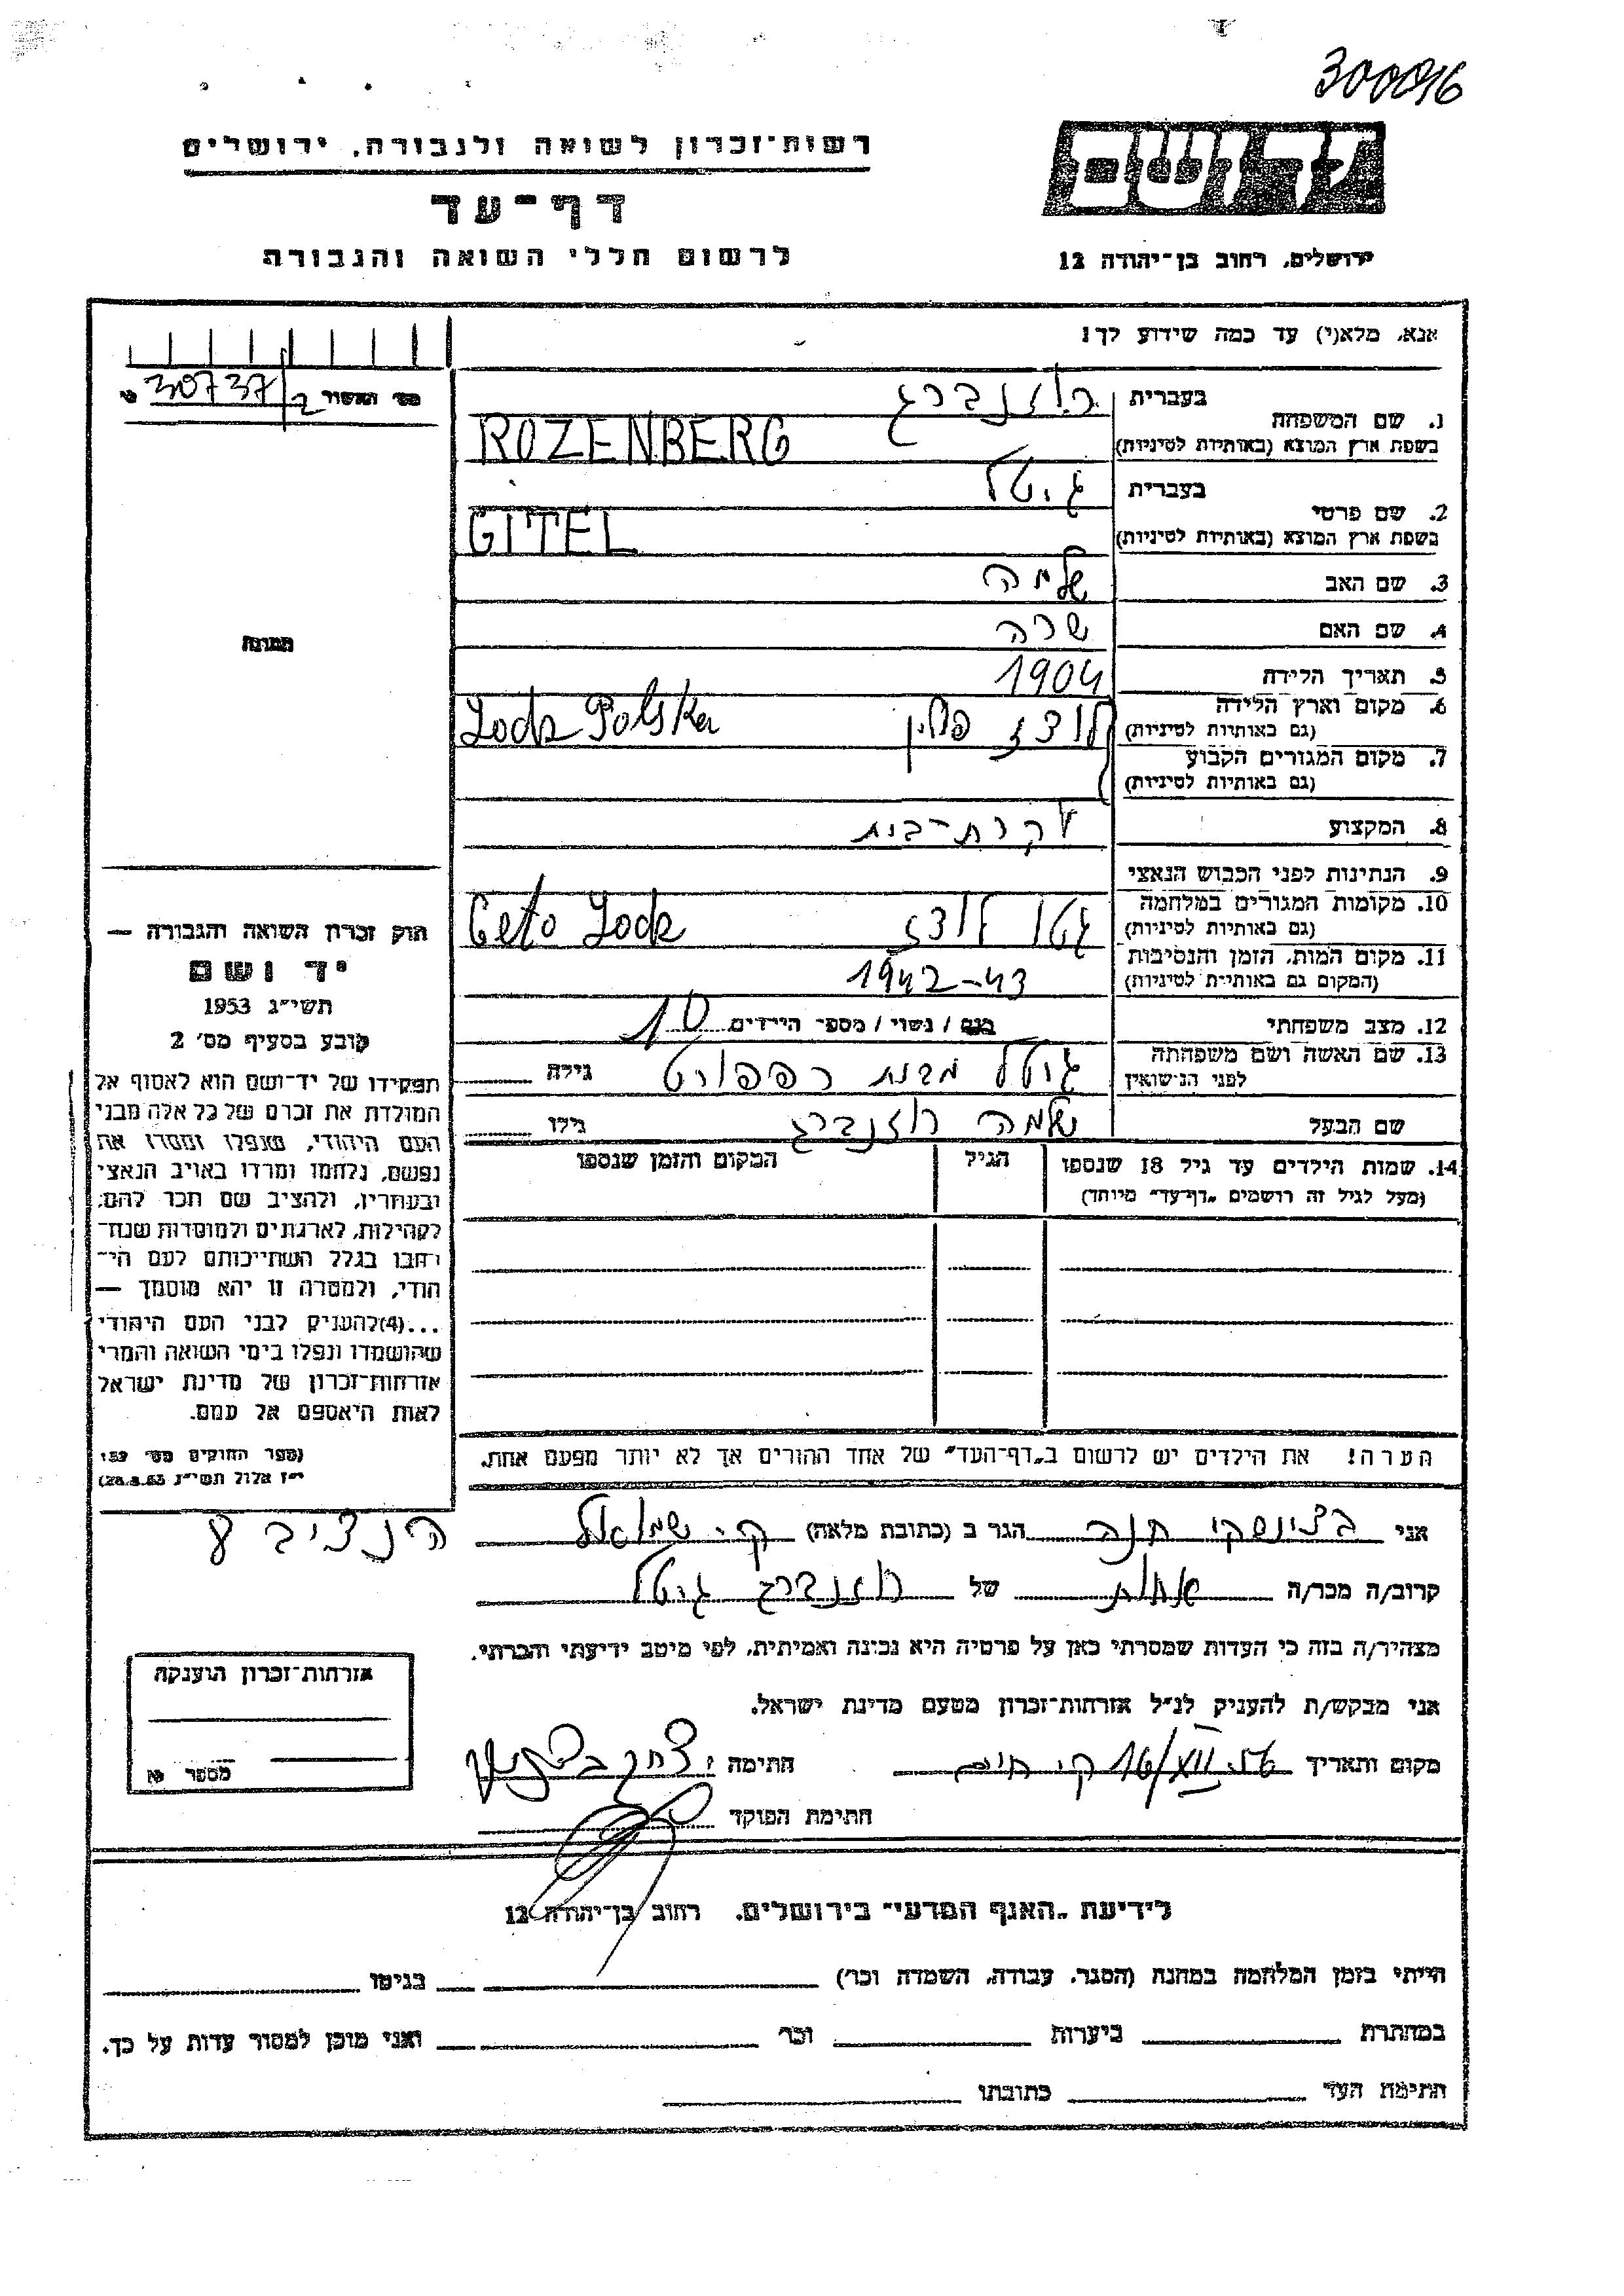 300016
רשות־זכרון לשואה ולגבורה, ירושלים
דף־עד
לרשום חללי השואה והגבורה
יד ושם
ירושלים, רחוב בן־יהודה 12
אנא, מלא(י) עד כמה שידוע לך!
מס׳ האשור 30737/2
1. שם המשפחה בעברית רוזנברג
בשפת ארץ המוצא (באותיות לטיניות) ROZENBERG
2. שם פרטי בעברית גיטל
בשפת ארץ המוצא (באותיות לטיניות) GITEL
3. שם האב שלמה
4. שם האם שרה
5. תאריך הלידה 1904
6. מקום וארץ הלידה (גם באותיות לטיניות) לודז פולין Lodz Polska
7. מקום המגורים הקבוע (גם באותיות לטיניות)
8. המקצוע עקרת-בית
9. הנתינות לפני הכבוש הנאצי
10. מקומות המגורים במלחמה (גם באותיות לטיניות) גטו לודז Geto Lodz
11. מקום המות, הזמן והנסיבות (המקום גם באותיות לטיניות) 1942-43
12. מצב משפחתי רווק / נשוי / מספר הילדים
13. שם האשה ושם משפחתה לפני הנישואין גיטל מבית רפפורט גילה
שם הבעל שלמה רוזנברג גילו
14. שמות הילדים עד גיל 18 שנספו (מעל לגיל זה רושמים „דף־עד״ מיוחד)
הגיל
המקום והזמן שנספו
הערה! את הילדים יש לרשום ב„דף־העד״ של אחד ההורים אך לא יותר מפעם אחת.
תמונה
חוק זכרון השואה והגבורה —
יד ושם
תשי״ג 1953
קובע בסעיף מס׳ 2
תפקידו של יד־ושם הוא לאסוף אל
המולדת את זכרם של כל אלה מבני
העם היהודי, שנפלו ומסרו את
נפשם, נלחמו ומרדו באויב הנאצי
ובעוזריו, ולהציב שם וזכר להם,
לקהילות, לארגונים ולמוסדות שנח־
רבו בגלל השתייכותם לעם הי־
הודי, ולמטרה זו יהא מוסמך —
...(4)להעניק לבני העם היהודי
שהושמדו ונפלו בימי השואה והמרי
אזרחות־זכרון של מדינת ישראל
לאות היאספם אל עמם.
(ספר החוקים מס׳ 132
י״ז אלול תשי״ג 28.8.53)
אני חנה הגר ב (כתובת מלאה) ק. שמואל הנציב 8
קרוב/ה מכר/ה אחות של רוזנברג גיטל
מצהיר/ה בזה כי העדות שמסרתי כאן על פרטיה היא נכונה ואמיתית, לפי מיטב ידיעתי והכרתי.
אני מבקש/ת להעניק לנ״ל אזרחות־זכרון מטעם מדינת ישראל.
מקום ותאריך ק. חיים 16/XII.56 חתימה
חתימת הפוקד
אזרחות־זכרון הוענקה
מספר
לידיעת „האגף המדעי״ בירושלים, רחוב בן־יהודה 12
הייתי בזמן המלחמה במחנה (הסגר, עבודה, השמדה וכו׳) בגיטו
במחתרת ביערות וכו׳ ואני מוכן למסור עדות על כך.
חתימת העד כתובתו